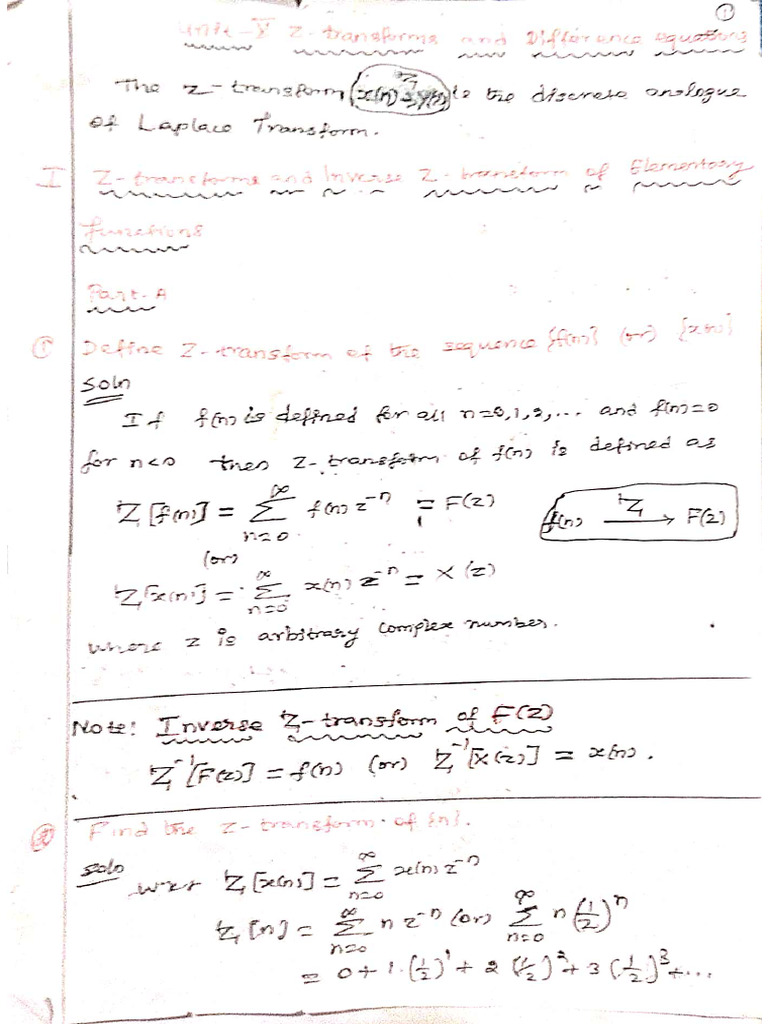 ①
Unit-V Z-transforms and Difference equations
The Z-transform (x(n) is the discrete analogue
of Laplace Transform.
I Z-transforms and Inverse Z-transform of Elementary
functions
Part-A
① Define Z-transform of the sequence {f(n)} (or) {x(n)}
Soln
If f(n) is defined for all n=0,1,2,... and f(n)=0
for n<0 then Z-transform of f(n) is defined as
Z[f(n)] = ∑_{n=0}^{∞} f(n) z^{-n} = F(z) f(n) —Z→ F(z)
(or)
Z[x(n)] = ∑_{n=0}^{∞} x(n) z^{-n} = X(z)
where z is arbitrary complex number.
Note: Inverse Z-transform of F(z)
Z^{-1}[F(z)] = f(n) (or) Z^{-1}[X(z)] = x(n).
② Find the Z-transform of {n}.
Soln W.K.T Z[x(n)] = ∑_{n=0}^{∞} x(n) z^{-n}
Z[n] = ∑_{n=0}^{∞} n z^{-n} (or) ∑_{n=0}^{∞} n (1/z)^n
= 0 + 1·(1/z)^1 + 2 (1/z)^2 + 3 (1/z)^3 + ...